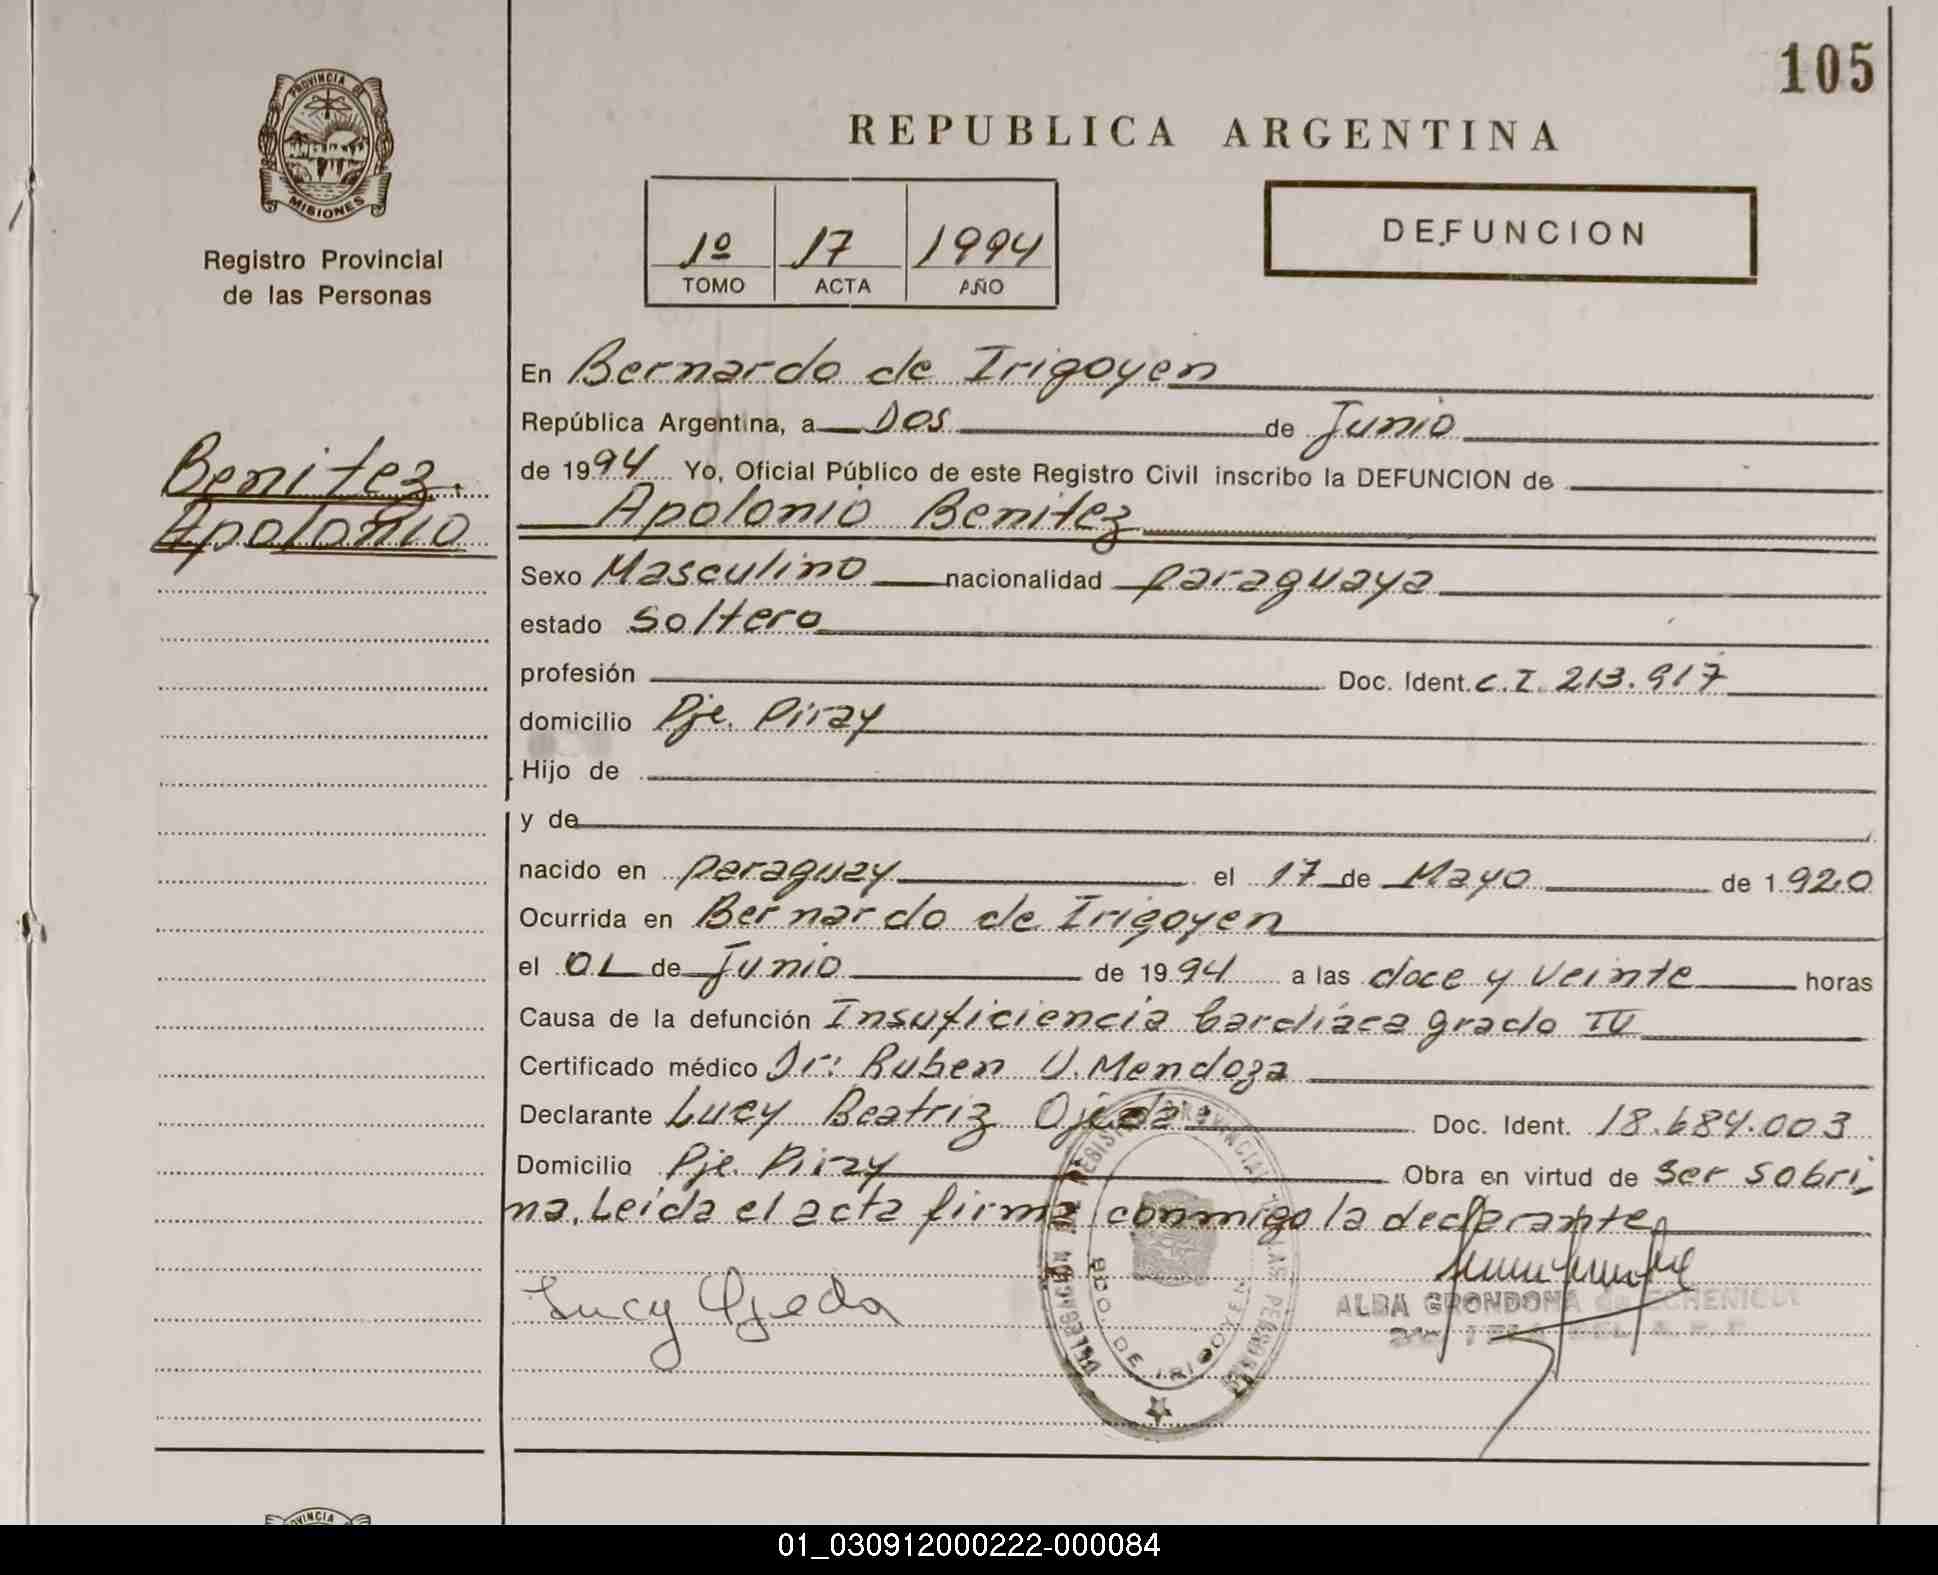 105
PROVINCIA DE
MISIONES
REPUBLICA ARGENTINA
Registro Provincial
de las Personas
1º 17 1994
TOMO ACTA AÑO
DEFUNCION
En Bernardo de Irigoyen
República Argentina, a Dos de Junio
de 1994 Yo, Oficial Público de este Registro Civil inscribo la DEFUNCION de
Benitez.
Apolonio
Apolonio Benitez
Sexo Masculino nacionalidad paraguaya
estado soltero
profesión Doc. Ident. C.I. 213.917
domicilio Pje. Piray
Hijo de
y de
nacido en paraguay el 17 de Mayo de 1920
Ocurrida en Bernardo de Irigoyen
el 01 de Junio de 1994 a las doce y veinte horas
Causa de la defunción Insuficiencia Cardíaca grado IV
Certificado médico Dr: Ruben U. Mendoza
Declarante Lucy Beatriz Ojeda Doc. Ident. 18.684.003
Domicilio Pje. Piray Obra en virtud de ser sobri-
na. Leida el acta firma conmigo la declarante
Lucy Ojeda
ALBA GRONDONA de ECHENIQUE
REGISTRO PROVINCIAL DE LAS PERSONAS
BDO. DE IRIGOYEN
PROVINCIA
01_030912000222-000084